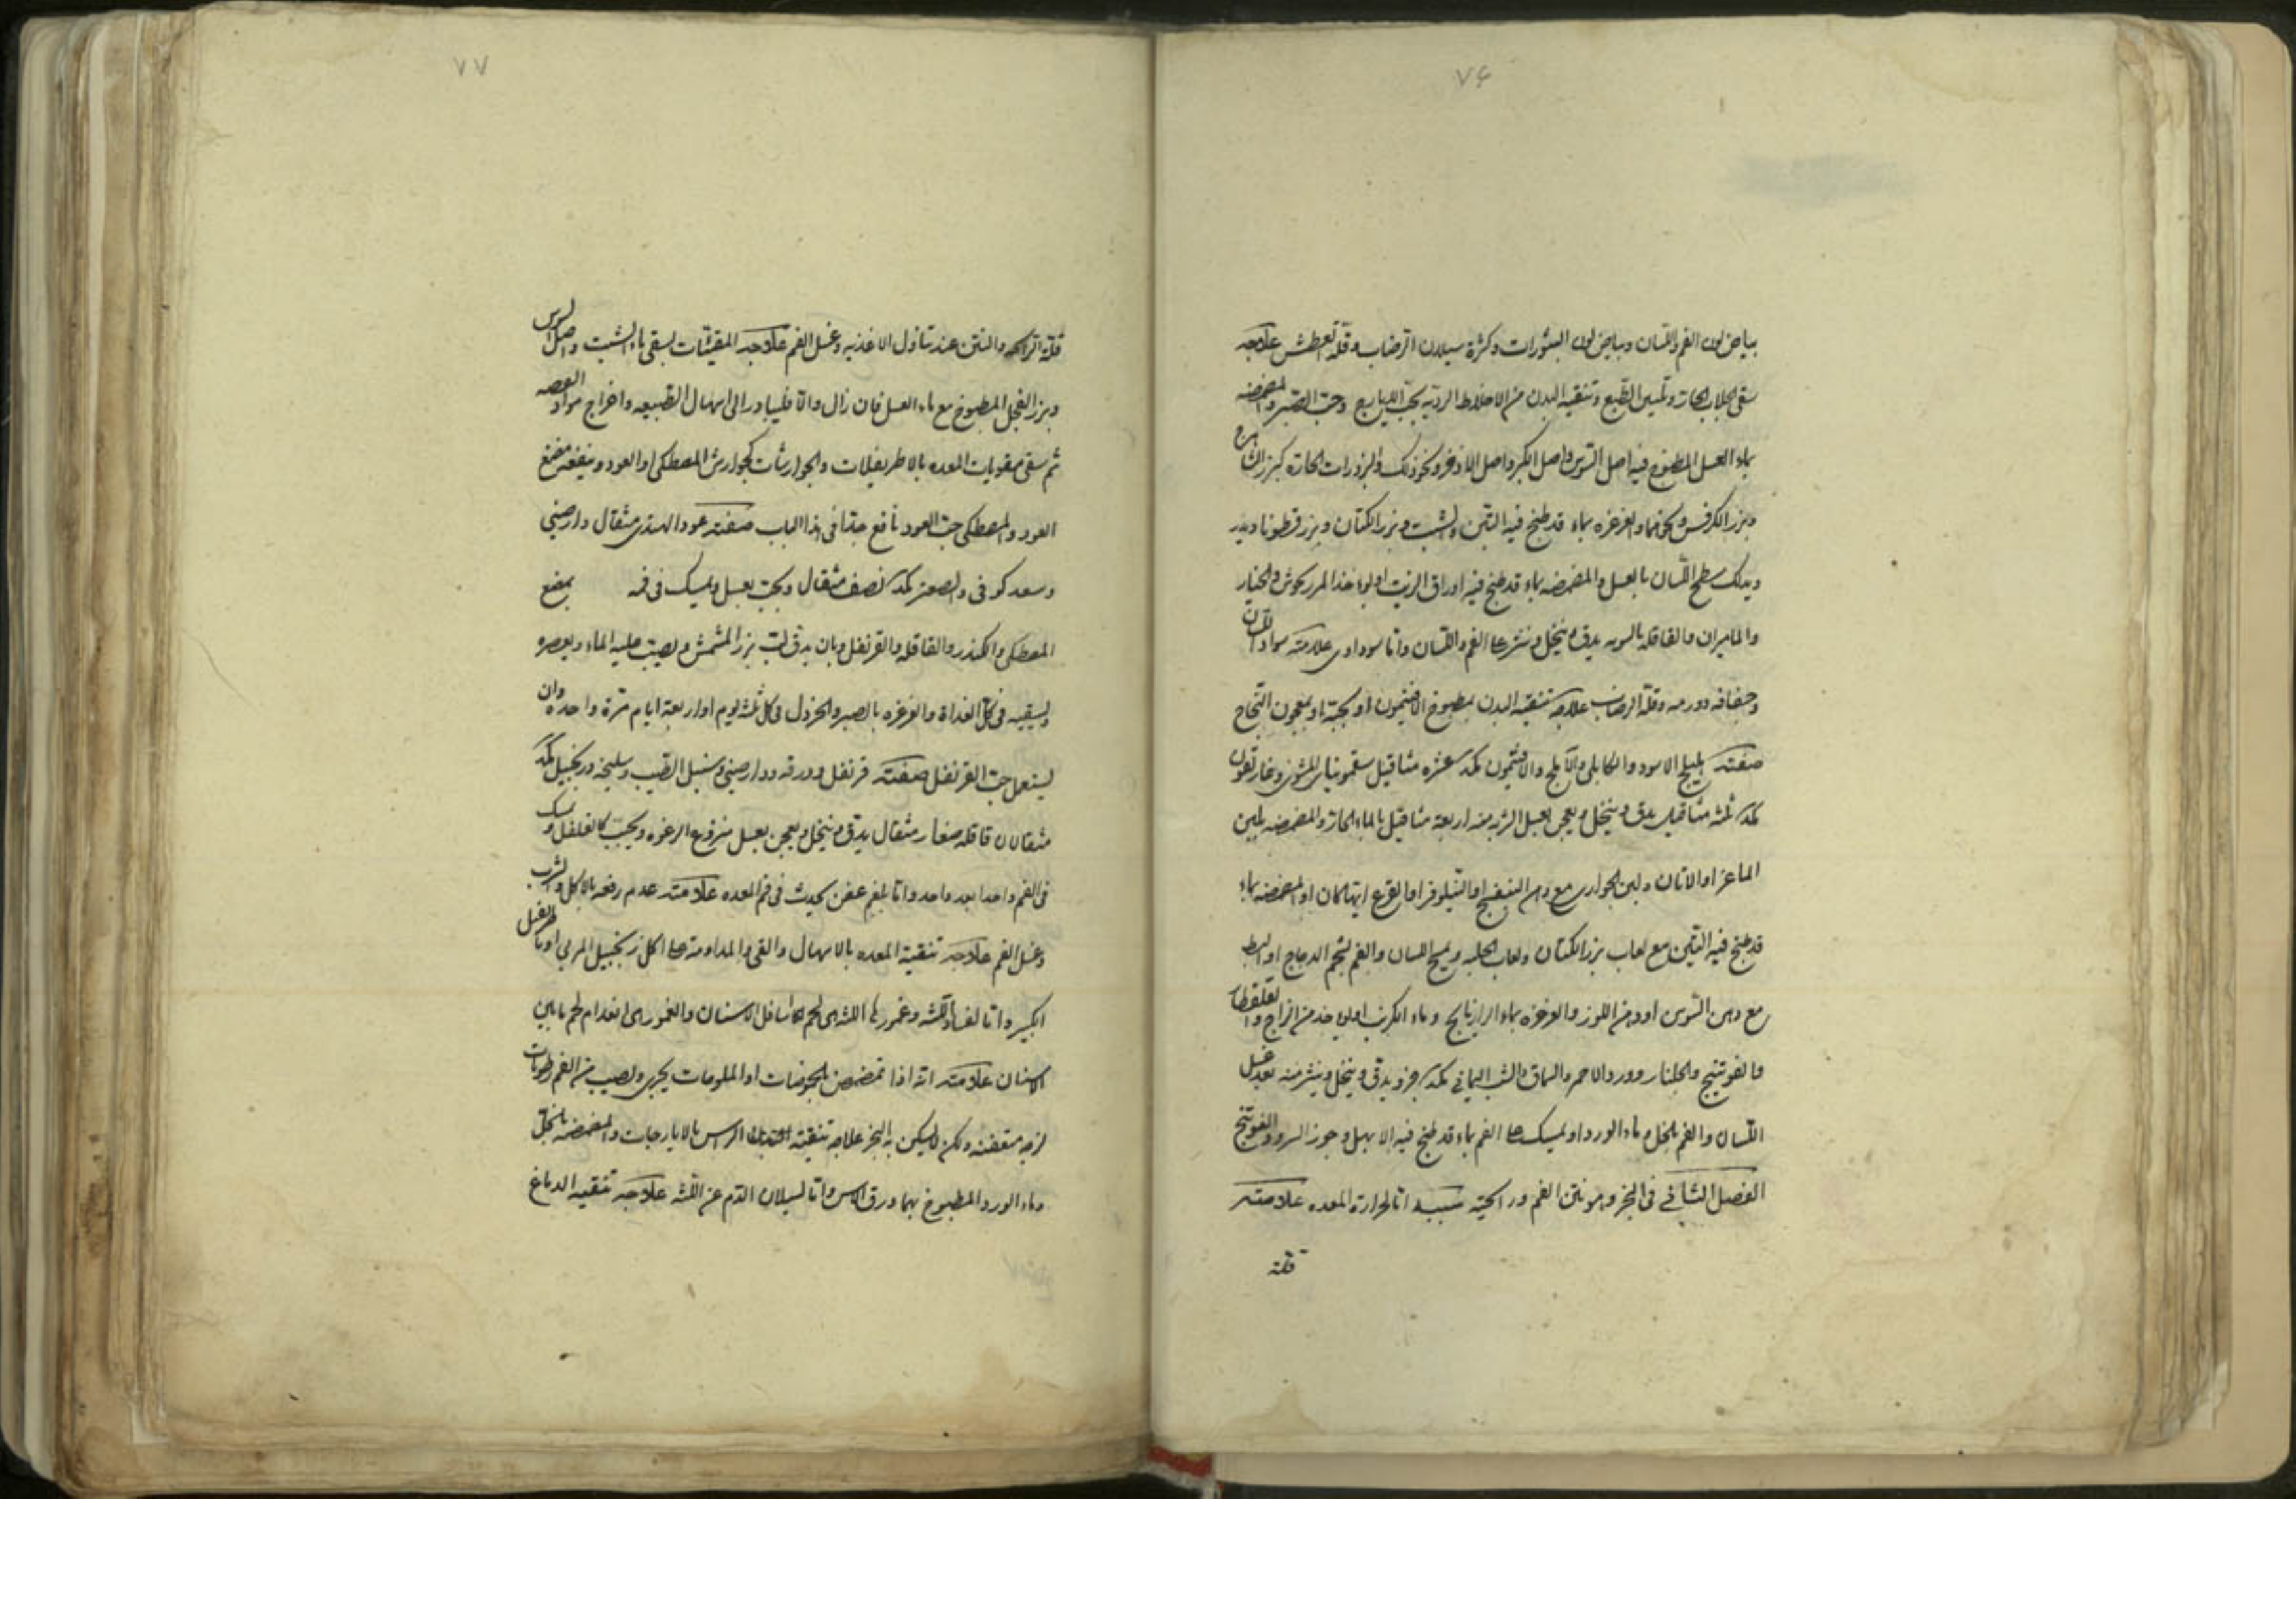 ٧۶
بياض لون الفم واللسان وبياض لون البثورات وكثرة سيلان الرضاب وقلة العطش علاجه
سقى الجلاب الحار وتليين الطبع وتنقية البدن من الاخلاط الردية بحب الايارج وحب الصبر والمضمضه
بماء العسل المطبوخ فيه اصل السوس واصل الكبر واصل الاذخر ونحو ذلك والبزورات الحارة كبزر الرازيانج
وبزر الكرفس ونحوهما والغرغره بماء قد طبخ فيه التين والشبت وبزر الكتان وبزر قطونا
ويدلك سطح اللسان بالعسل والمضمضه بماء قد طبخ فيه اوراق الزيت اولوبا خذ المرزنجوش والجلنار
والماميران والقاقله بالسويه يدق وينخل وينثر على الفم واللسان واما سوداوى علامته سواد اللسان
وجفافه وورمه وقلة الرضاب علاجه تنقية البدن بمطبوخ الافتيمون او بحبه او بمعجون النجاح
صفته هليلج الاسود والكابلى والآملج والافتيمون كمد عشره مثاقيل سقمونيا المشوى وغاريقون
كمد ثلثه مثاقيل يدق وينخل ويعجن بعسل الشربه منه اربعة مثاقيل بالماء الحار والمضمضه بلبن
الماعز او الاتان ولبن الجوارى مع دهن البنفسج او النيلوفر او القرع ايتها كان او المضمضه بماء
قد طبخ فيه التين مع لعاب بزر الكتان ولعاب الحلبه ويمسح اللسان والفم بشحم الدجاج او البط
مع دهن السوسن او دهن اللوز والغرغره بماء الرازيانج وماء الكرنب اولوبا خذ من الزاج والقلقطار
والفوتنج والجلنار وورد الاحمر والسماق والشب اليمانى كمد جزو يدق وينخل وينثر منه بعد غسل
اللسان والفم بالخل وماء الورد او يمسك على الفم بماء قد طبخ فيه الابهل وجوز السرو والفوتنج
الفصل الثانى فى البخر وهو نتن الفم ورائحته سببه اما لحرارة المعده علامته
قلة
٧٧
قلة الرائحه والنتن عند تناول الاغذيه وغسل الفم علاجه المقيئات بسقى ماء الشبت واصل السوس
وبزر الفجل المطبوخ مع ماء العسل فان زال والا فليبادر الى اسهال الطبيعه واخراج مواد العفصه
ثم سقى مقويات المعده بالاطريفلات والجوارشات كجوارش المصطكى او العود وينفعه مضغ
العود والمصطكى حب العود نافع جدا فى هذا الباب صفته عود الهندى مثقال دارصينى
وسعد كوفى والصعتر كمد نصف مثقال ويجب بعسل ويمسك فى فمه يمضغ
المصطكى والكندر والقاقله والقرنفل وبان يدق لب بزر المشمش ويصب عليه الماء ويعصره
ويسقيه فى كل الغداة والغرغره بالصبر والخردل فى كل ثلثه يوم او اربعة ايام مرة واحده وان
يستعمل حب القرنفل صفته قرنفل وورقه ودارصينى وسنبل الطيب وسليخه وزنجبيل كمد
مثقالان قاقله صغار مثقال يدق وينخل ويعجن بعسل منزوع الرغوه ويحبب كالفلفل ويمسك
فى الفم واحدا بعد واحد واما لبلغم عفن يحدث فى فم المعده علامته عدم رفعه بالاكل والشرب
وغسل الفم علاجه تنقية المعده بالاسهال والقى والمداومة على اكل زنجبيل المربى او باطريفل
الكبير واما لفساد اللثه وغمورها اللثه هى لحم اسافل الاسنان والغمور هى انعدام لحم ما بين
الاسنان علامته انه اذا تمضمض بالحموضات او الملوحات يجرى ويصيب من الفم رطوبات
لزجه متعفنه ولكن لا يسكن به البخر علاجه تنقية الراس بالايارجات والمضمضه بالخل
وماء الورد المطبوخ بهما ورق الاس واما لسيلان الدم عن اللثه علاجه تنقية الدماغ